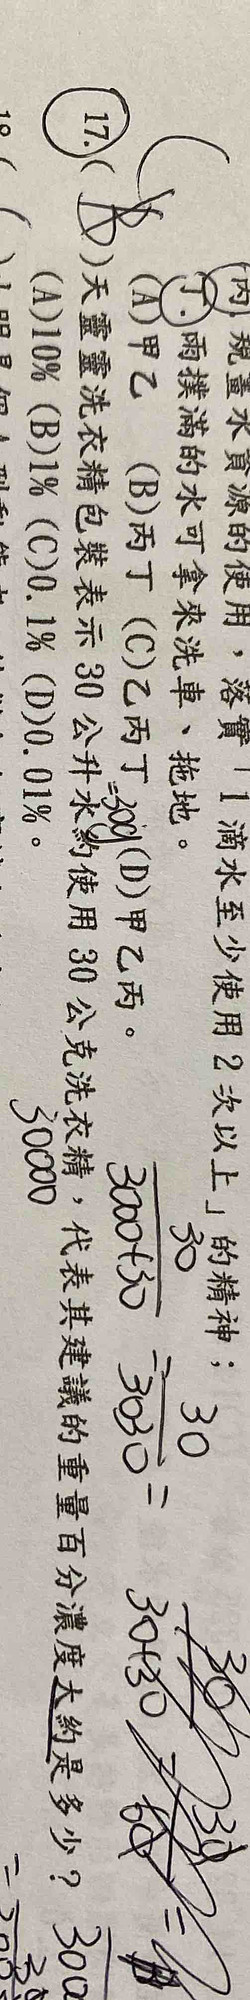 (丙)規畫水資源的使用，落實「1滴水至少使用2次以上」的精神；
丁.雨撲滿的水可拿來洗車、拖地。
(A)甲乙 (B)丙丁 (C)乙丙丁 (D)甲乙丙。
17.( B )天靈靈洗衣精包裝表示30公升水約使用30公克洗衣精，代表其建議的重量百分濃度大約是多少？
(A)10% (B)1% (C)0.1% (D)0.01%。
30
3000+30
=
30
3030
=
30
30+30
=
30
60
=
30000